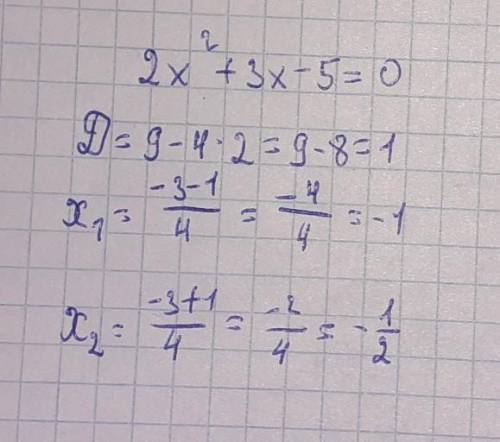 2x² + 3x - 5 = 0
D = 9 - 4 · 2 = 9 - 8 = 1
x₁ = (-3-1)/4 = -4/4 = -1
x₂ = (-3+1)/4 = -2/4 = -1/2